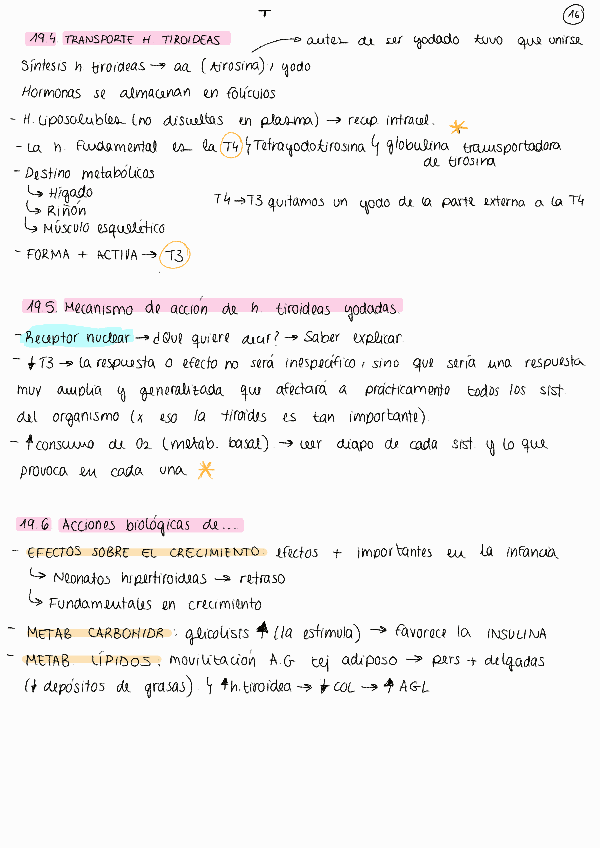 T
16
19.4 TRANSPORTE H TIROIDEAS → antes de ser yodado tuvo que unirse
Síntesis h tiroideas → aa (tirosina), yodo
Hormonas se almacenan en folículos
- H. Liposolubles (no disueltas en plasma) → recep intracel. *
- La h. Fundamental es la T4 ↳ Tetrayodotirosina ↳ globulina transportadora de tirosina
- Destino metabólicos
↳ Hígado
↳ Riñón
↳ Músculo esquelético
T4 → T3 quitamos un yodo de la parte externa a la T4
- FORMA + ACTIVA → T3
19.5. Mecanismo de acción de h. tiroideas yodadas.
- Receptor nuclear → ¿Que quiere decir? → Saber explicar
- ↓ T3 → la respuesta o efecto no será inespecífico, sino que sería una respuesta
muy amplia y generalizada que afectará a prácticamente todos los sist.
del organismo (x eso la tiroides es tan importante).
- ↑ consumo de O2 (metab. basal) → leer diapo de cada sist. y lo que
provoca en cada una *
19.6 Acciones biológicas de...
- EFECTOS SOBRE EL CRECIMIENTO: efectos + importantes en la infancia
↳ Neonatos hipertiroideas → retraso
↳ Fundamentales en crecimiento
- METAB CARBOHIDR: glicolisis ↑ (la estimula) → favorece la INSULINA
- METAB LÍPIDOS, movilitación A.G tej adiposo → pers + delgadas
(↓ depósitos de grasas) ↳ ↑ h. tiroidea → ↓ COL → ↑ AGL